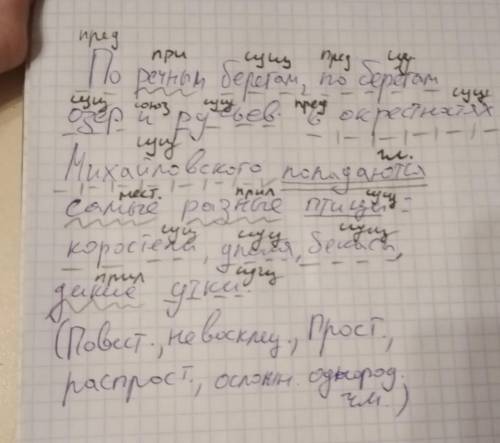 пред при сущ пред сущ
По речным берегам, по берегам
сущ союз сущ пред сущ
озер и ручьев в окрестностях
сущ гл.
Михайловского попадаются
мест. прил сущ
самые разные птицы:
сущ сущ сущ
коростели, дупеля, бекасы,
прил сущ
дикие утки.
(Повест., невосклиц., Прост.,
распрост., осложн. однород.
чл.)